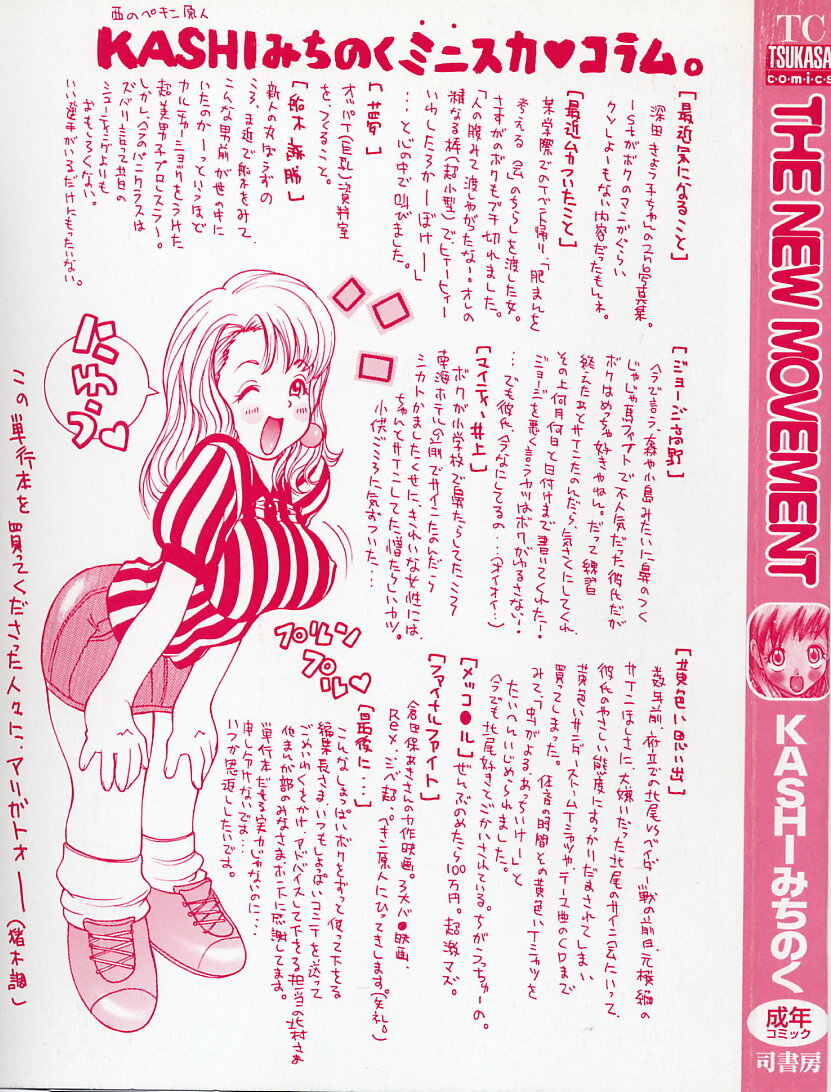 西のペキン原人
KASHIみちのくミニスカ♥コラム。
[最近気になること]
深田きょう子ちゃんの2nd写真集。
1stがボクのマンガぐらい
クソしょーもない内容だったもんネ。
[最近ムカついたこと]
某学際でのイベント帰り、「肥まんを
考える会」のちらしを渡した女。
さすがのボクもブチ切れました。
「人の腹みて渡しやがったなー!オレの
精なる棒(超小型)で、ヒィーヒィー
いわしたろかーぼけーー」
…と心の中で叫びました。
[夢]
オッパイ(巨乳)資料室
を、つくること。
[船木誠勝]
新人の丸ぼうずの
ころ、ま近で船木をみて、
こんな男前が世の中に
いたのかーっというほど
カルチャーショックをうけた
超美男子プロレスラー。
しかし、今のパンクラスは
ズバリ言って昔の
シューティングよりも
おもしろくない。
いい選手がいるだけにもったいない。
[ジョージ高野]
今で言う、森や小島みたいに鼻のつく
じゃじゃ馬ファイトで不人気だった彼氏だが
ボクはめっちゃ好きやねん。だって練習
終えたあとサインたのんだら、気さくにしてくれ、
その上何月何日と日付けまで書いてくれたー!
ジョージを悪く言うヤツはボクがゆるさない!
…でも彼氏、今なにしてるの…(オイオイ…)
[マイティ・井上]
ボクが小学校で鼻たらしてたころ
南海ホテル(金剛)でサインたのんだら
シカトかましたくせに、きれいな女性には、
ちゃんとサインしてた憎たらしいヤツ。
小供ごころに気ずついた…
[黄色い思い出]
数年前、府立での北尾VSベイダー戦の前日、元横綱の
サインほしさに、大嫌いだった北尾のサイン会にいって、
彼氏のやさしい態度にすっかりだまされてしまい
黄色いサンダーストームTシャツやテーマ曲のCDまで
買ってしまった。佐吉の時間との黄色いTシャツを
みて、「虫がよる、あっちいけー」と
たいへんいじめられました。
今でも北尾好きとごかいされている。ちがうっちゅーの。
[メッコ●ル]ぜんぶのめたら100万円。超激マズ。
[ファイナルファイト]
倉田保あきさんの力作映画。3大バ●映画、
Rex、シベ超、ペキン原人にひってきします。(失礼。)
[最後に…]
こんなしょっぱいボクをずっと使って下さる
編集長さま、いつもしょっぱいコンテを送って
ごめいわくをかけ、アドバイスして下さる担当の北村さま
他まんが部のみなさま、ホントに感謝してます。
単行本だせる実力じゃないのに…
申し分けないです…
いつか恩返ししたいです。
パンチラ
ブンチン♡
プルルン
プル♡
この単行本を買ってくださった人々に、アリガトォーー(猪木調)
TC
TSUKASA
comics
THE NEW MOVEMENT
KASHIみちのく
成年
コミック
司書房